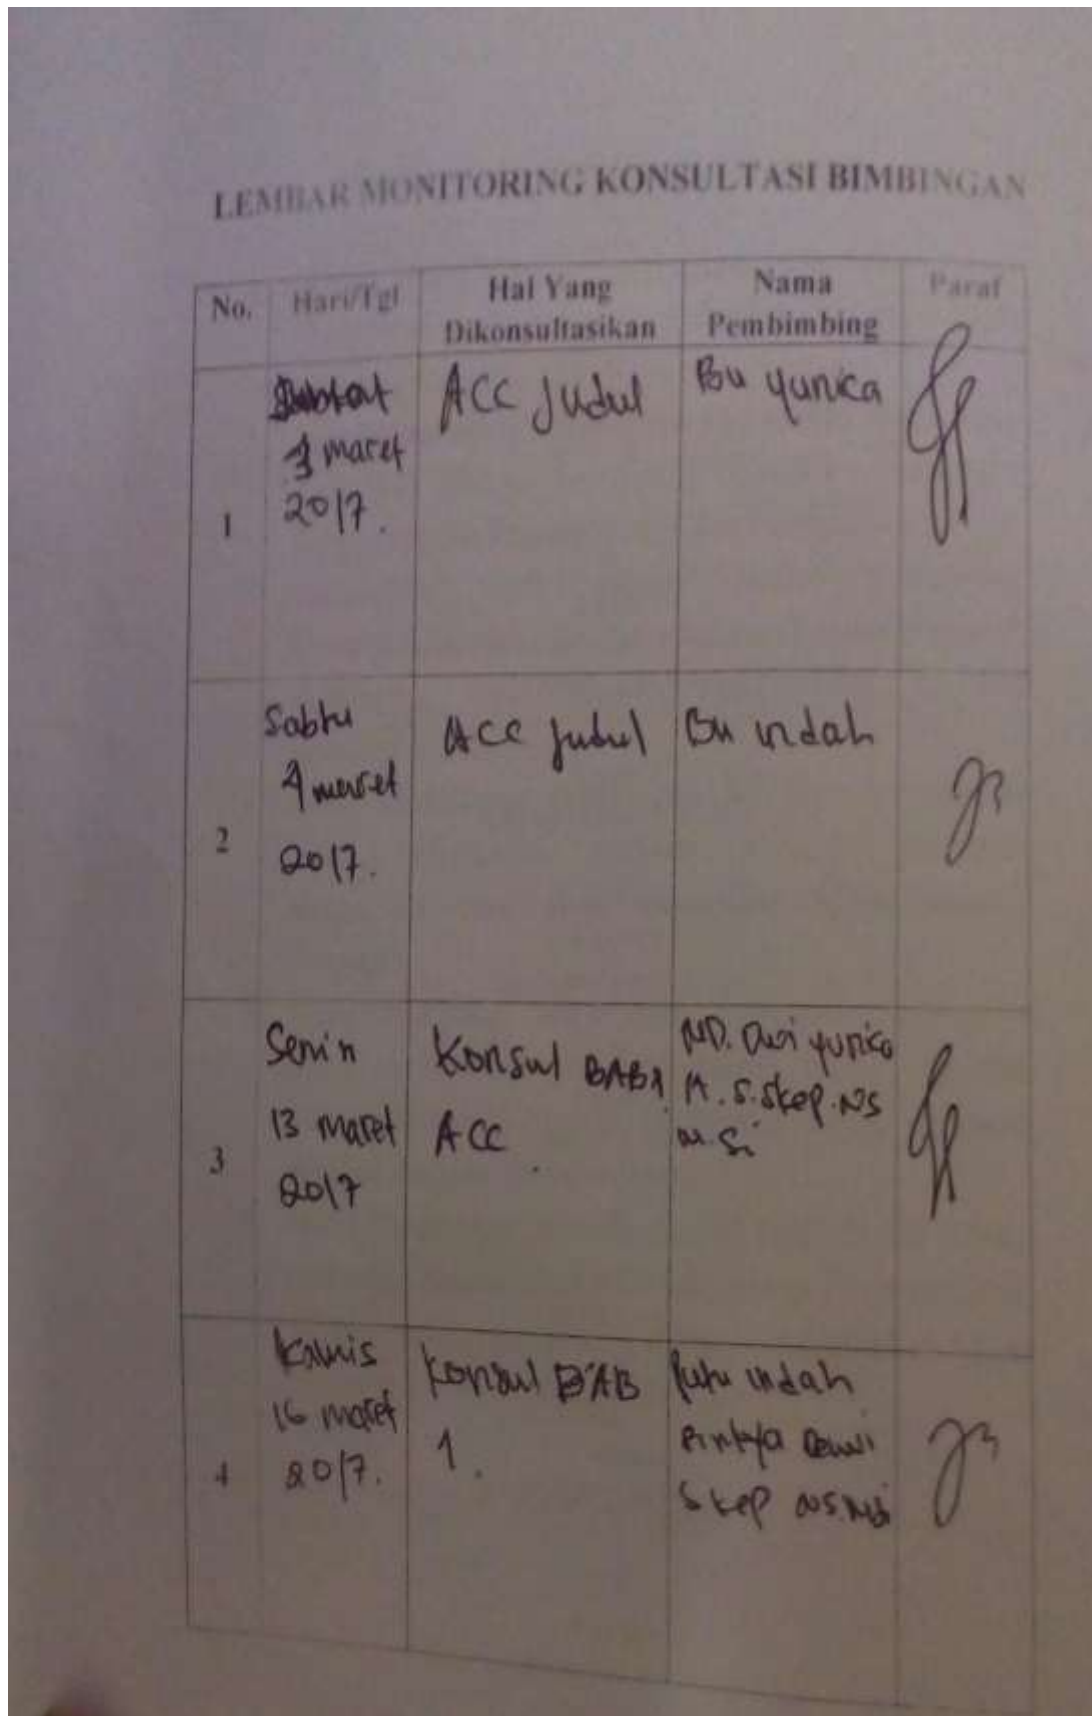 LEMBAR MONITORING KONSULTASI BIMBINGAN
No. Hari/Tgl Hal Yang Dikonsultasikan Nama Pembimbing Paraf
1
maret
2017.
ACC Judul
Bu yunica
2
Sabtu
4 maret
2017.
ACC Judul
Bu indah
3
Senin
13 maret
2017
Konsul BAB 1
ACC.
MD. Dwi yunica
A. S.Skep.NS
M.Si
4
Kamis
16 maret
2017.
Konsul BAB
1.
Putu indah
Dewi
Skep NS.MSi